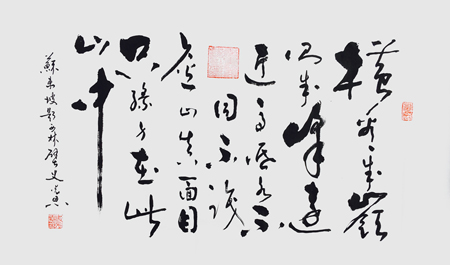 橫看成嶺
側成峰遠
近高低各不
同不識
廬山真面目
只緣身在此
山中
蘇東坡題西林壁